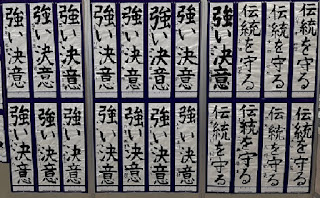 伝統を守る
伝統を守る
伝統を守る
強い決意
強い決意
強い決意
強い決意
強い決意
強い決意
強い決意
強い決意
伝統を守る
伝統を守る
伝統を守る
伝統を守る
強い決意
強い決意
強い決意
強い決意
強い決意
強い決意
強い決意